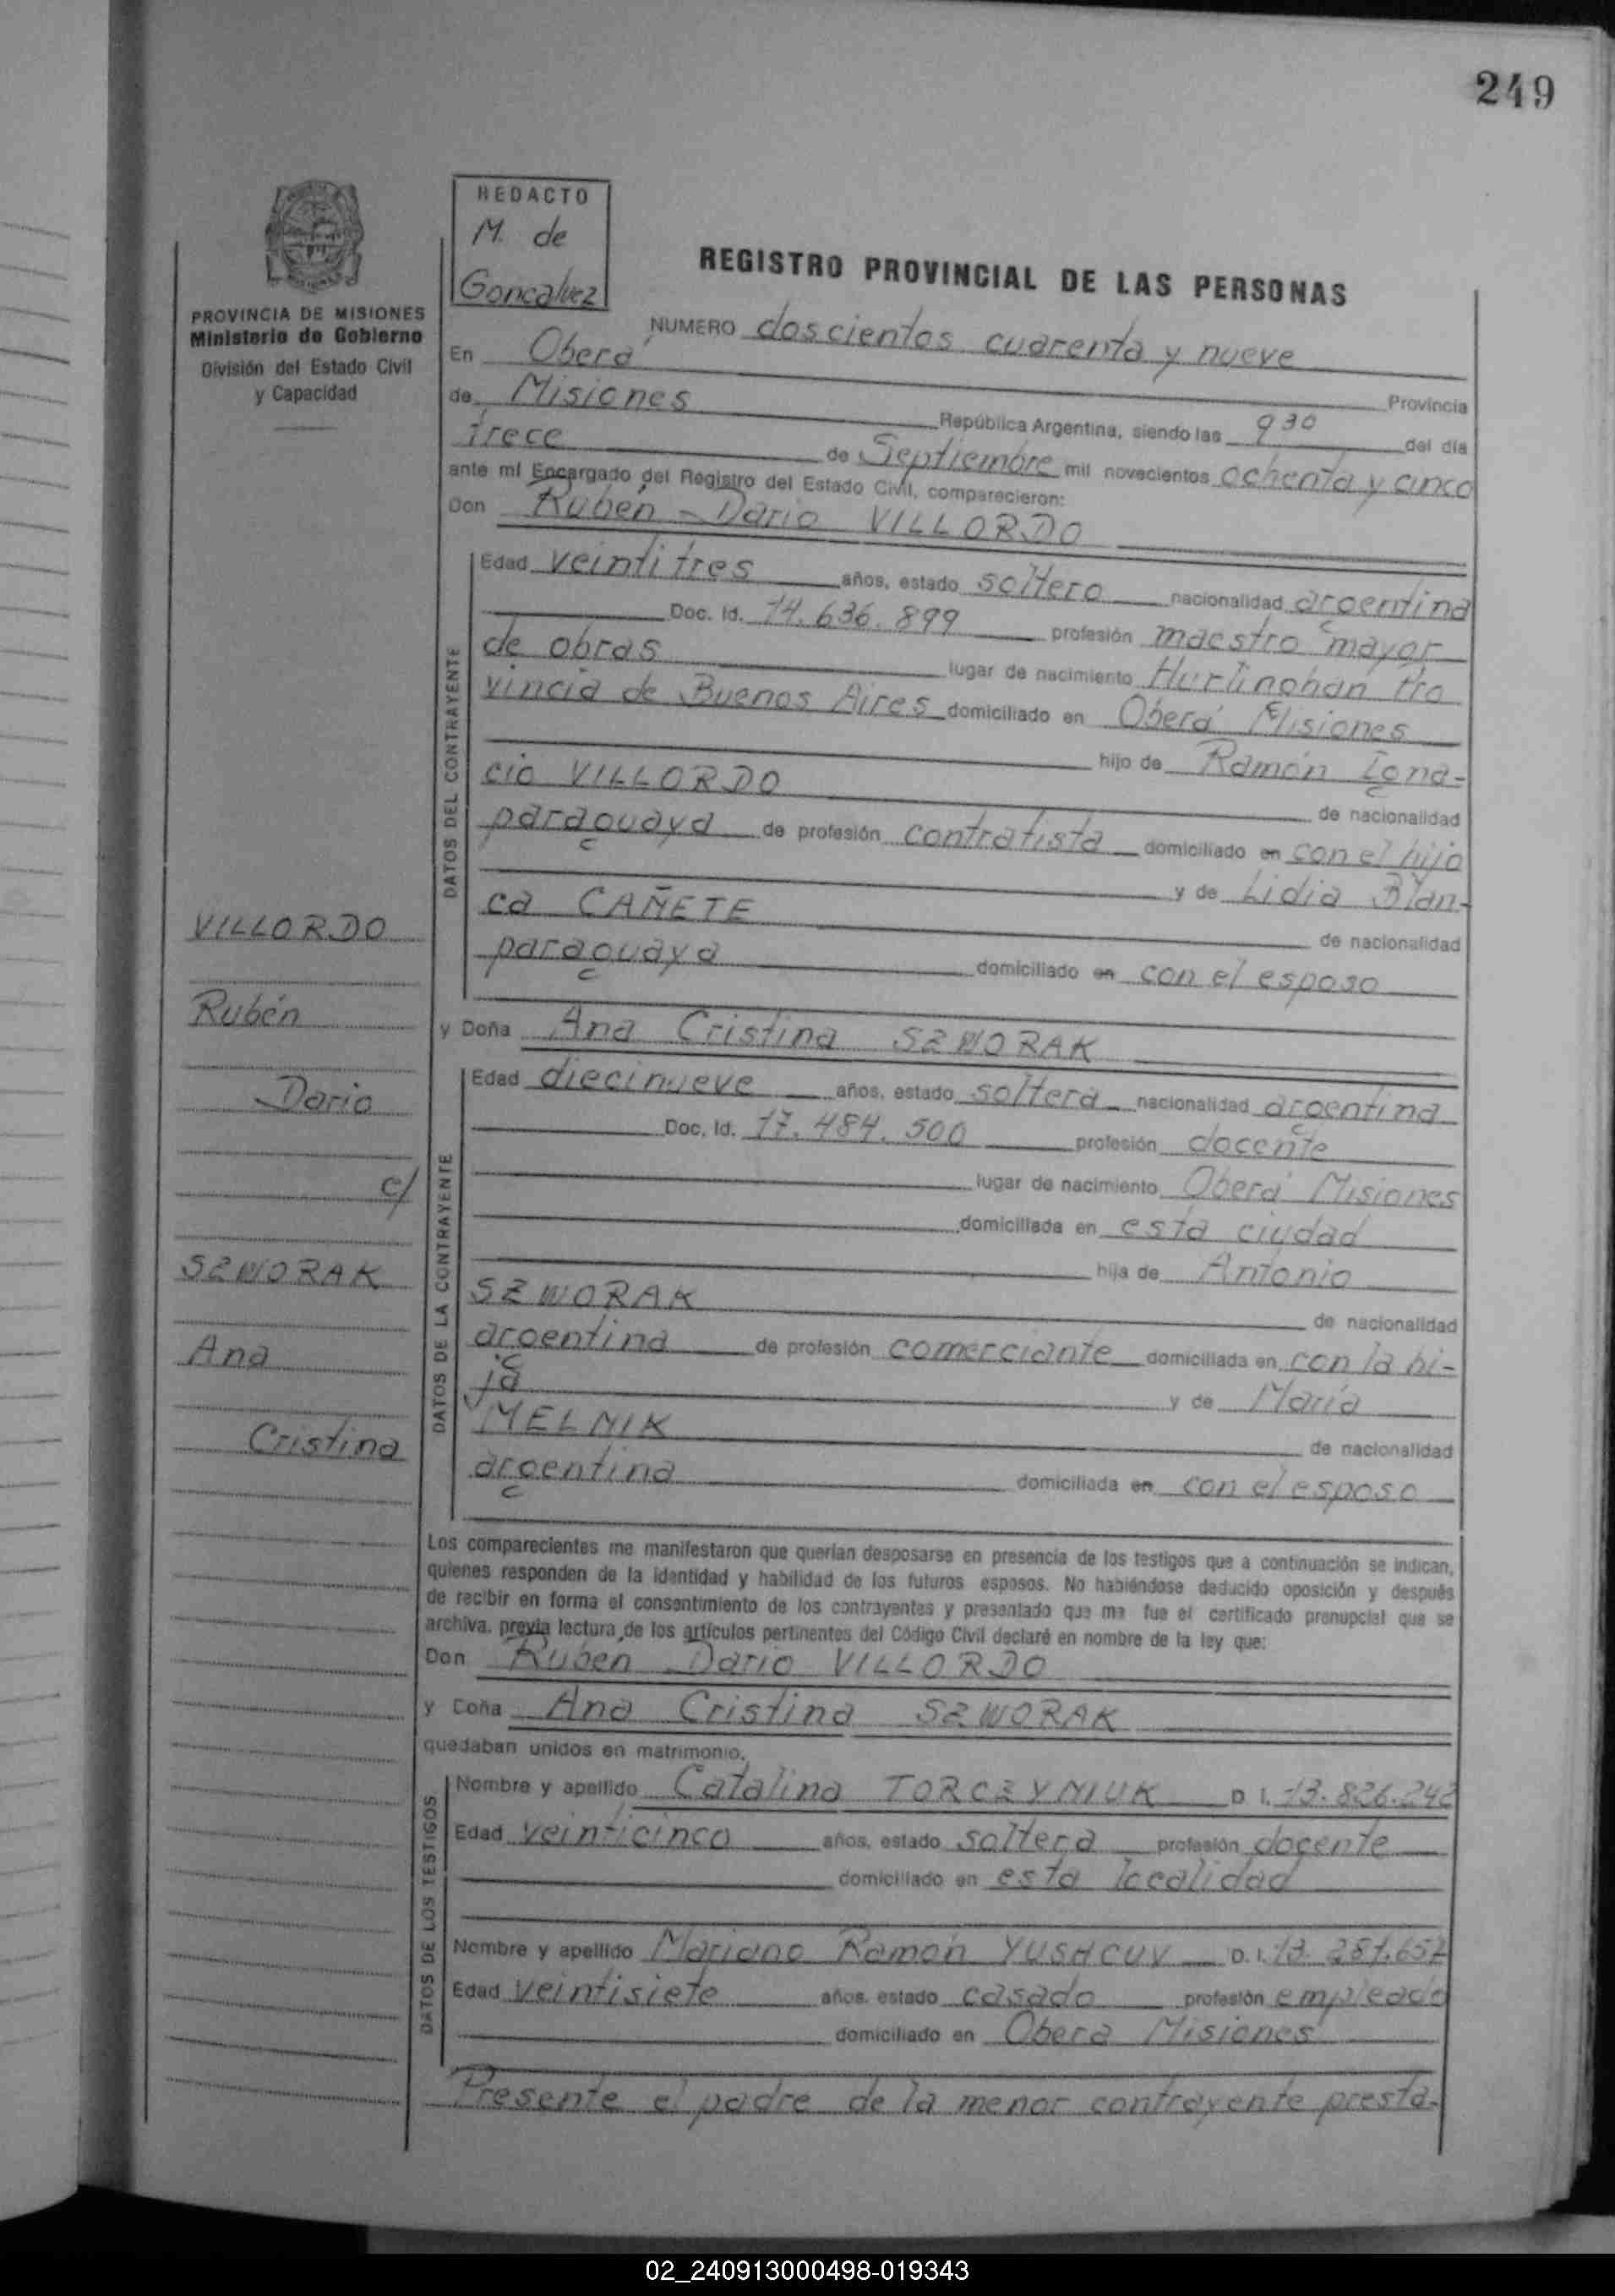 249
REDACTO
M. de
Goncalvez
PROVINCIA DE MISIONES
Ministerio de Gobierno
División del Estado Civil
y Capacidad
REGISTRO PROVINCIAL DE LAS PERSONAS
NUMERO doscientos cuarenta y nueve
En Oberá Provincia
de Misiones República Argentina, siendo las 9 30 del día
trece de Septiembre mil novecientos ochenta y cinco
ante mi Encargado del Registro del Estado Civil, comparecieron:
Don Rubén Dario VILLORDO
DATOS DEL CONTRAYENTE
Edad veintitres años, estado soltero nacionalidad argentina
Doc. Id. 14.636.899 profesión maestro mayor
de obras lugar de nacimiento Hurlinghan Pro
vincia de Buenos Aires domiciliado en Oberá Misiones
hijo de Ramón Igna-
cio VILLORDO de nacionalidad
paraguaya de profesión contratista domiciliado en con el hijo
y de Lidia Blan-
ca CAÑETE de nacionalidad
paraguaya domiciliado en con el esposo
y Doña Ana Cristina SZWORAK
DATOS DE LA CONTRAYENTE
Edad diecinueve años, estado soltera nacionalidad argentina
Doc. Id. 17.484.500 profesión docente
lugar de nacimiento Oberá Misiones
domiciliada en esta ciudad
hija de Antonio
SZWORAK de nacionalidad
argentina de profesión comerciante domiciliada en con la hi-
ja y de María
MELNIK de nacionalidad
argentina domiciliada en con el esposo
VILLORDO
Rubén
Dario
c/
SZWORAK
Ana
Cristina
Los comparecientes me manifestaron que querían desposarse en presencia de los testigos que a continuación se indican,
quienes responden de la identidad y habilidad de los futuros esposos. No habiéndose deducido oposición y después
de recibir en forma el consentimiento de los contrayentes y presentado que me fue el certificado prenupcial que se
archiva, previa lectura de los artículos pertinentes del Código Civil declaré en nombre de la ley que:
Don Rubén Dario VILLORDO
y Doña Ana Cristina SZWORAK
quedaban unidos en matrimonio.
DATOS DE LOS TESTIGOS
Nombre y apellido Catalina TORCZYNIUK D. I. 13.826.242
Edad veinticinco años, estado soltera profesión docente
domiciliado en esta localidad
Nombre y apellido Mariano Ramón YUSHCUV D. I.
Edad veintisiete años, estado casado profesión empleado
domiciliado en Oberá Misiones
Presente el padre de la menor contrayente presta-
02_240913000498-019343